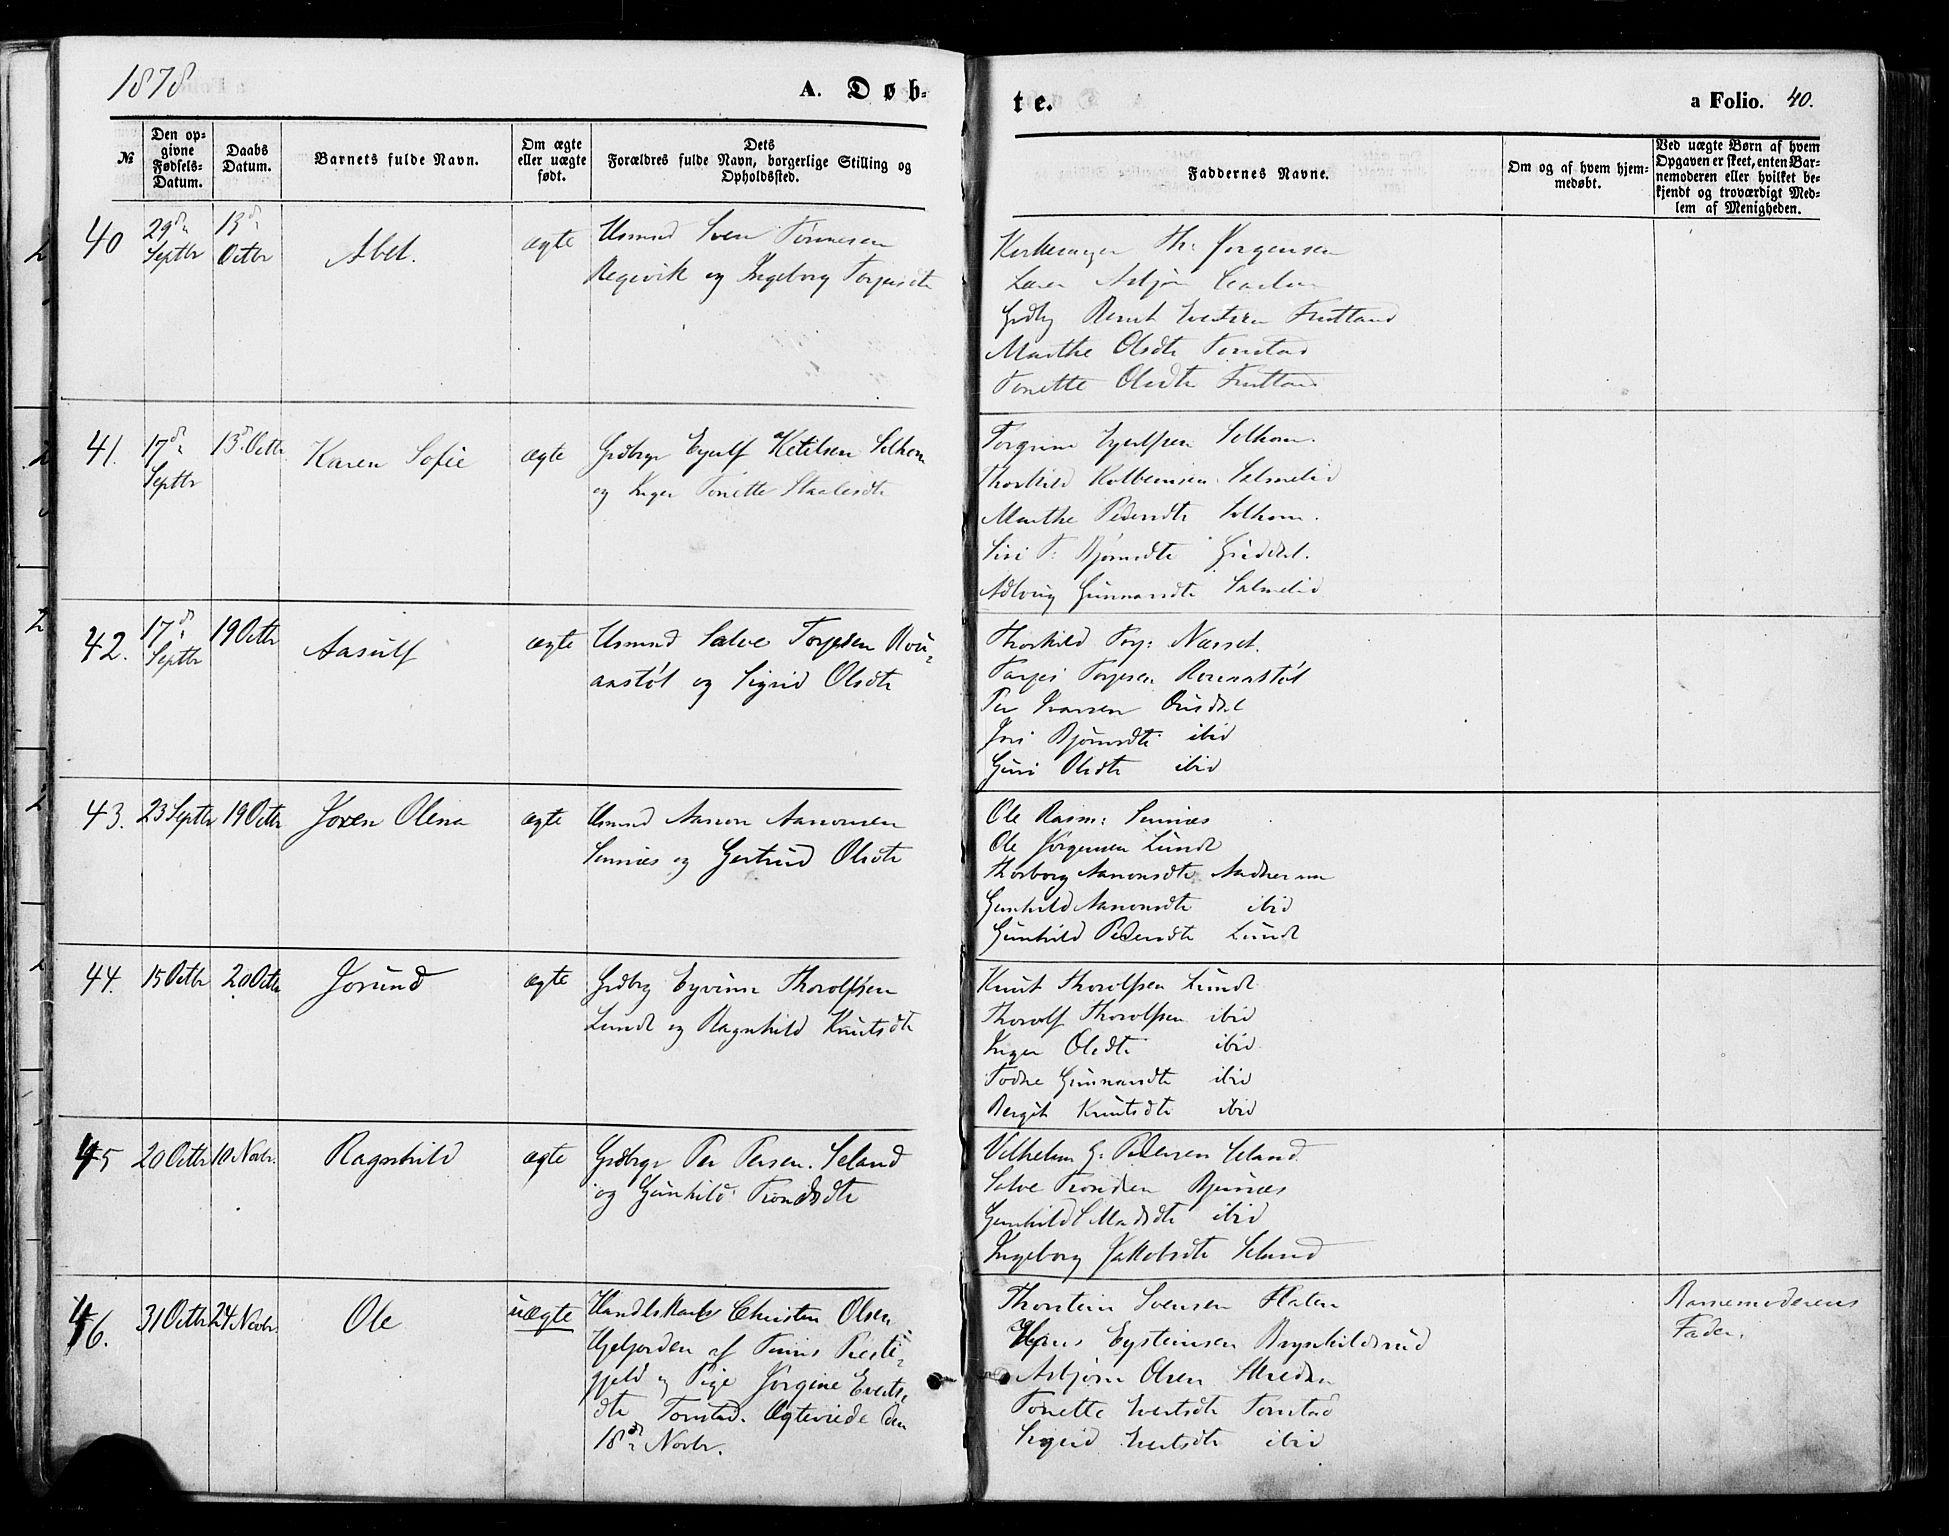 1878
A. Døb-
te.
a Folio. 40.
№
Den op-
givne
Fødsels-
Datum.
Daabs
Datum.
Barnets fulde Navn.
Om ægte
eller uægte
født.
Dets
Forældres fulde Navn, borgerlige Stilling og
Opholdssted.
Faddernes Navne.
Om og af hvem hjem-
medøbt.
Ved uægte Børn af hvem
Opgaven er skeet, enten Bar-
nemoderen eller hvilket be-
kjendt og troværdigt Med-
lem af Menigheden.
40
29de
Septbr
13de
Octbr
Abel.
ægte
Usmnd Sven Tønnesen
Regevik og Ingeborg Torjusdtr
Kirkesanger Th: Jørgensen
Lærer Asbjørn
Grdbg Berent Evertsen
Marthe Olsdtr Tonstad
Tonette Olsdtr
41.
17de
Septbr
13de Octbr
Karen Sofie
ægte
Grdbrgr Eyulf Ketilsen Selhom
og Inger Tonette Staalesdtr
Torgrim Eyulfsen Selhom.
Thorkild Kolbeinsen Salmelid
Marthe Pedersdtr Selhom.
Siri T: Bjørnsdtr
Adlvug Gunnarsdtr Salmelid
42.
17de
Septbr
19 Octbr
Aasulf
ægte
Usmnd Salve Torjesen Rou-
anstøl og Sigrid Olsdtr
Thorkild Torj: Næsset.
Tarjei Torjesen Rouanstøl
Per Ivarsen Ousdal
Jori Bjørnsdtr ibid
Guri Olsdtr ibid
43.
23 Septbr
19 Octbr
Joren Olena
ægte
Usmnd Aanon Aanonsen
Sinnes og Gertrud Olsdtr
Ole Rasm: Sinnes
Ole Jørgensen Lunde
Thorborg Aanonsdtr
Gunhild Aanonsdtr ibid
Gunhild Pedersdtr Lunde
44.
15 Octbr
20 Octbr
Jorund
ægte
Grdbrg Eyvinn Thorolfsen
Lunde og Ragnhild Knutsdtr
Knut Thorolfsen Lunde
Thorolf Thorolfsen ibid
Inger Olsdtr ibid
Todne Gunnarsdtr ibid
Bergit Knutsdtr ibid
45
20 Octbr
10 Novbr.
Ragnhild
ægte
Grdbrgr Per Persen Seland
og Gunhild Trondsdtr
Vilhelm G: Pedersen Seland
Salve Trondsen
Gunhild S Madsdtr ibid
Ingeborg Jakobsdtr Seland
46.
31 Octbr
24 Novbr.
Ole
uægte
Handlskarl Christen Olsen
Hjeljorden af Finnis Præste-
gjeld og Pige Jørgine Everts-
dtr Tonstad. Ægteviede den
18de Novbr.
Thorstein Svensen Flaten
Hans Eysteinsen Brynhildsrud
Asbjørn Olsen
Tonette Evertsdtr Tonstad
Sigrid Evertsdtr ibid
Barnemoderens
Fader.